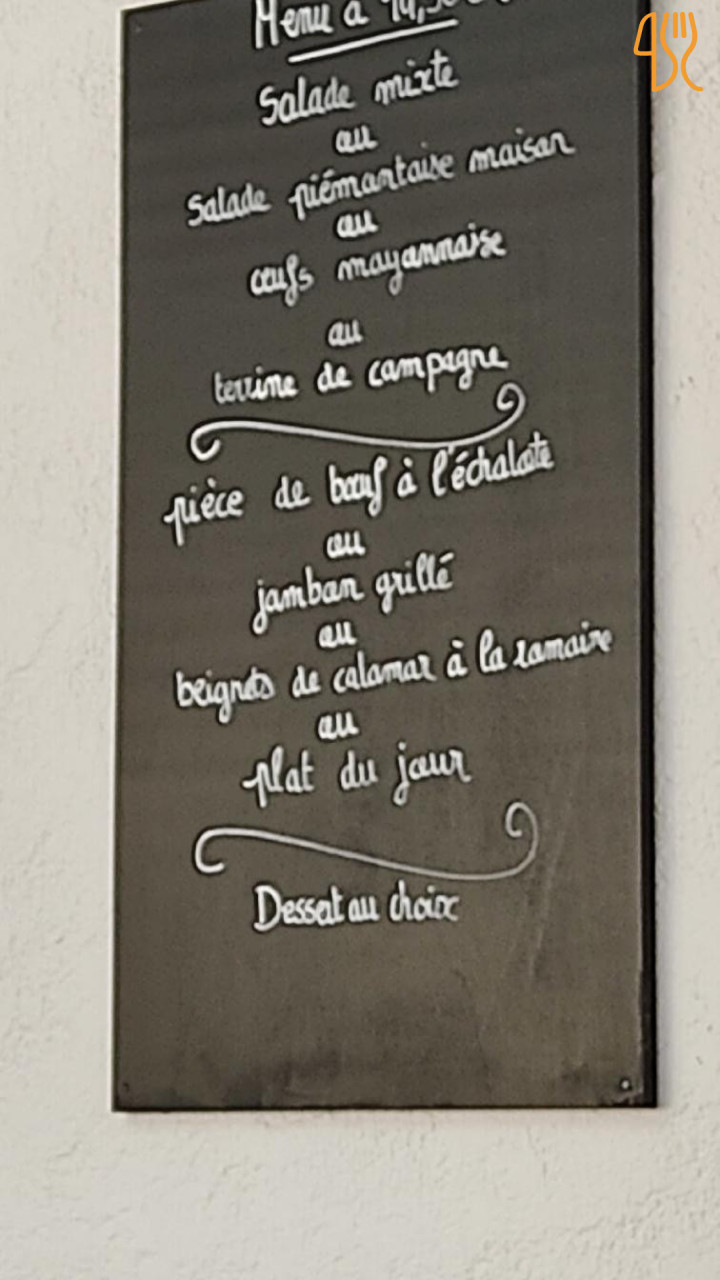 Menu à
Salade mixte
ou
Salade piémontaise maison
ou
œufs mayonnaise
ou
terrine de campagne
pièce de bœuf à l'échalote
ou
jambon grillé
ou
beignets de calamar à la romaine
ou
plat du jour
Dessert au choix